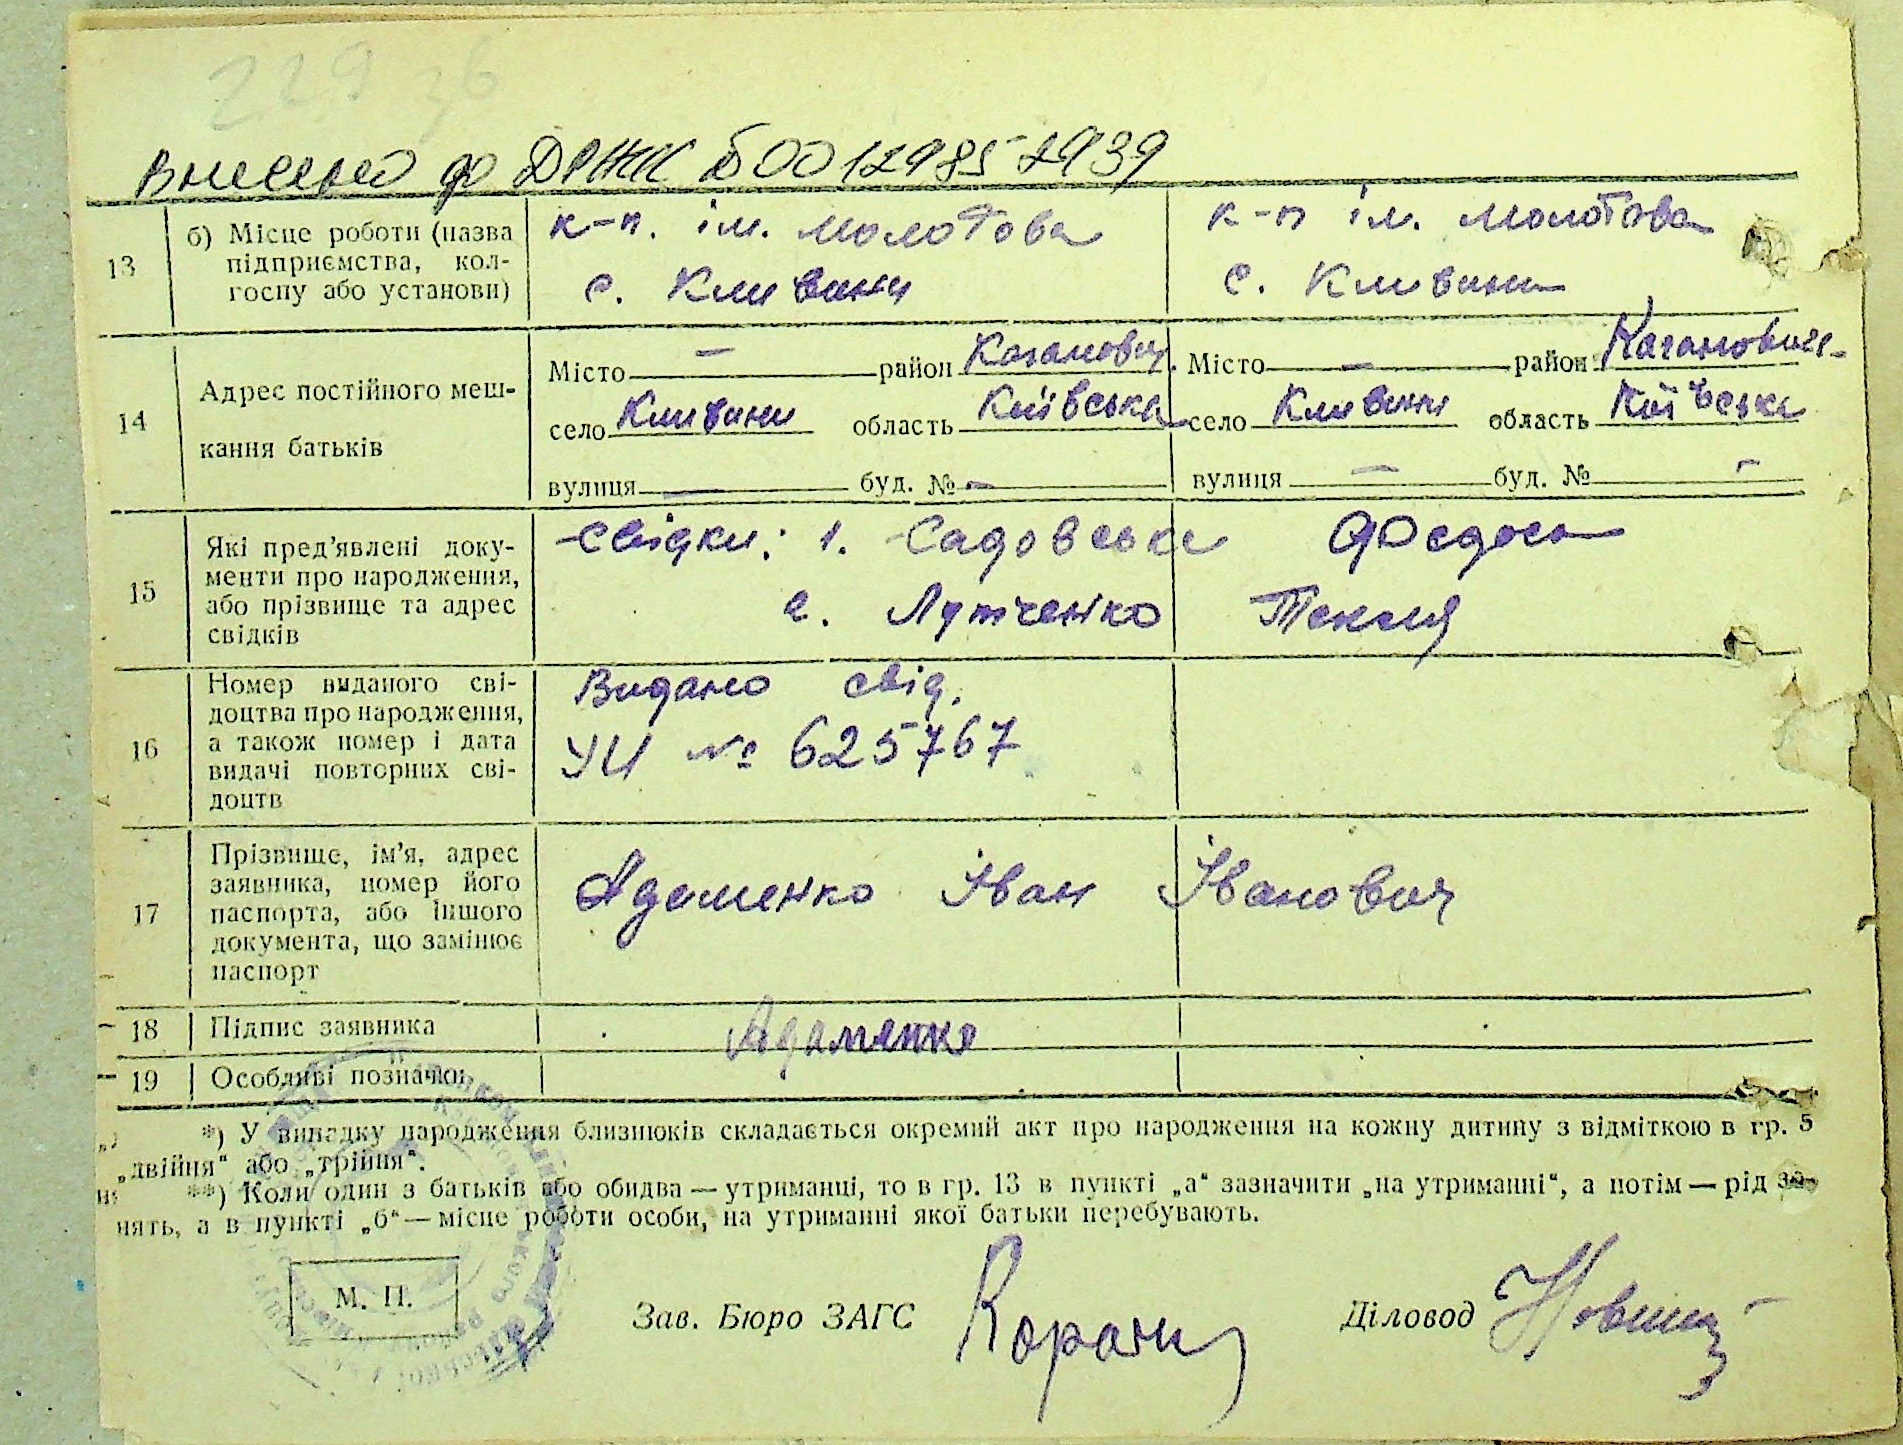 229 зб
Внесено до ДРЖК Б00129852939
13 б) Місце роботи (назва підприємства, колгоспу або установи) к-п. ім. Молотова к-п ім. Молотова
с. Кливини с. Кливини
14 Адрес постійного мешкання батьків
Місто — район Каганович. Місто — район Каганович-
село Кливини область Київська село Кливини область Київська
вулиця — буд. № — вулиця — буд. № -
15 Які пред'явлені документи про народження, або прізвище та адрес свідків
Свідки: 1. Садовська Федося
2. Лутченко Текля
16 Номер виданого свідоцтва про народження, а також номер і дата видачі повторних свідоцтв
Видано свід.
УИ № 625767
17 Прізвище, ім'я, адрес заявника, номер його паспорта, або іншого документа, що замінює паспорт
Адаменко Іван Іванович
18 Підпис заявника Адаменко
19 Особливі позначки
*) У випадку народження близнюків складається окремий акт про народження на кожну дитину з відміткою в гр. 5
„двійня“ або „трійня“.
**) Коли один з батьків або обидва — утриманці, то в гр. 13 в пункті „а“ зазначити „на утриманні“, а потім — рід за-
нять, а в пункті „б“ — місце роботи особи, на утриманні якої батьки перебувають.
М. П. Зав. Бюро ЗАГС Діловод